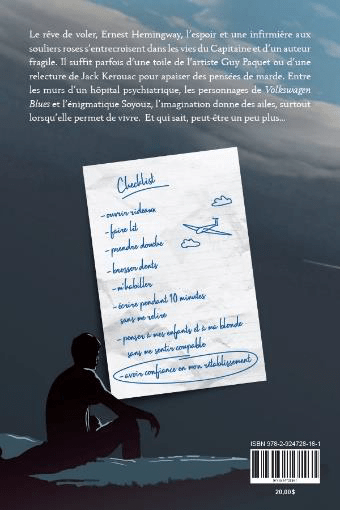 Le rêve de voler, Ernest Hemingway, l'espoir et une infirmière aux
souliers roses s'entrecroisent dans les vies du Capitaine et d'un auteur
fragile. Il suffit parfois d'une toile de l'artiste Guy Paquet ou d'une
relecture de Jack Kerouac pour apaiser des pensées de marde. Entre
les murs d'un hôpital psychiatrique, les personnages de Volkswagen
Blues et l'énigmatique Soyouz, l'imagination donne des ailes, surtout
lorsqu'elle permet de vivre. Et qui sait, peut-être un peu plus...
Checklist
- ouvrir rideaux
- faire lit
- prendre douche
- brosser dents
- m'habiller
- écrire pendant 10 minutes
sans me relire
- penser à mes enfants et à ma blonde
sans me sentir coupable
- avoir confiance en mon rétablissement
ISBN 978-2-924728-16-1
20,00$